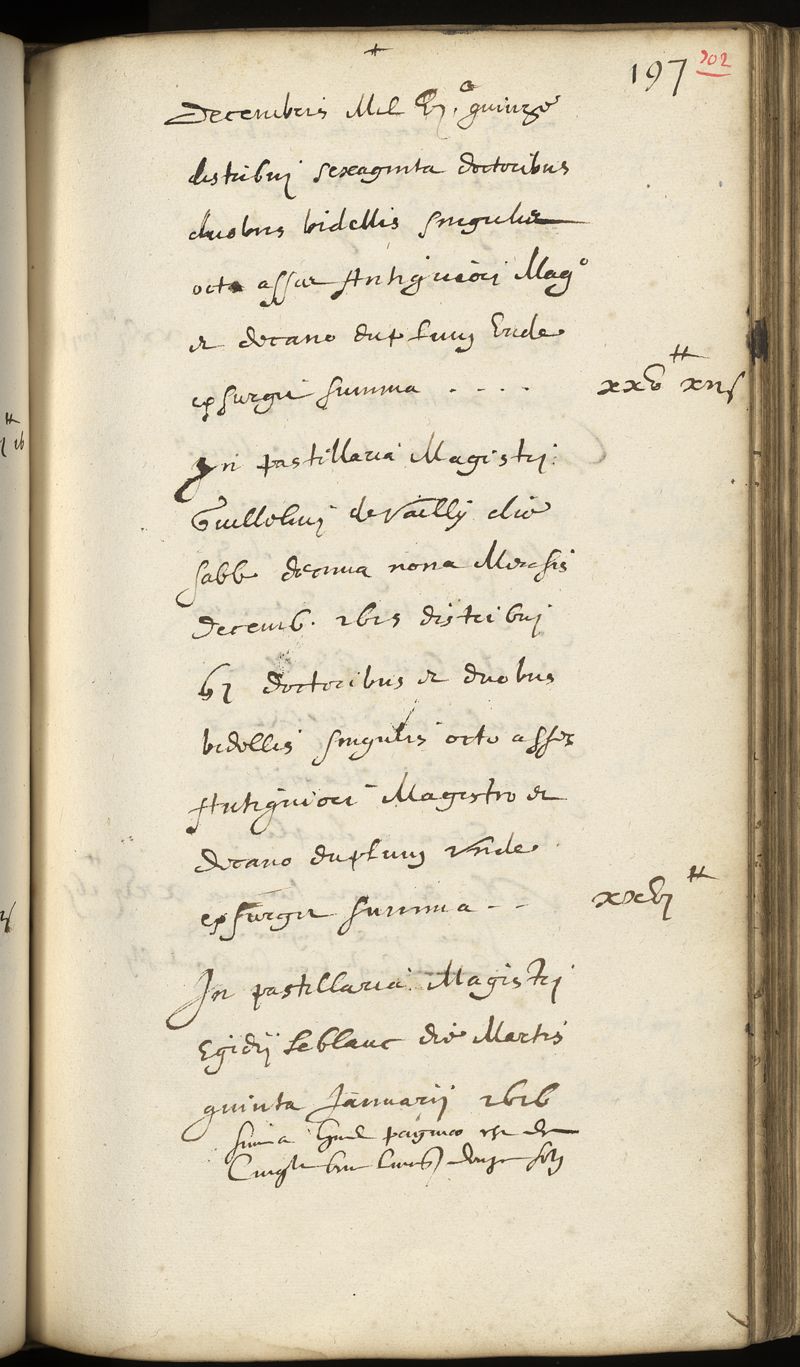 197 302
Decembris Mil vj.c quinze
distribuj sexaginta doctoribus
duobus bidellis singulis
octo asses Antiquiori Mago
et decano duplum Vnde
exsurgit summa - - - - xxv# xijs
In pastillaria Magistrj
Guillelmj de Vailly die
sabb decima nona Mensis
Decemb. 1615 distribuj
61 doctoribus et duobus
bidellis singulis octo asses
Antiquiori Magistro et
decano duplum Vnde
exsurgit summa - - xxvj#
In pastillaria Magistrj
Egidij Leblanc die Martis
quinta Januarij 1616
paginae est de